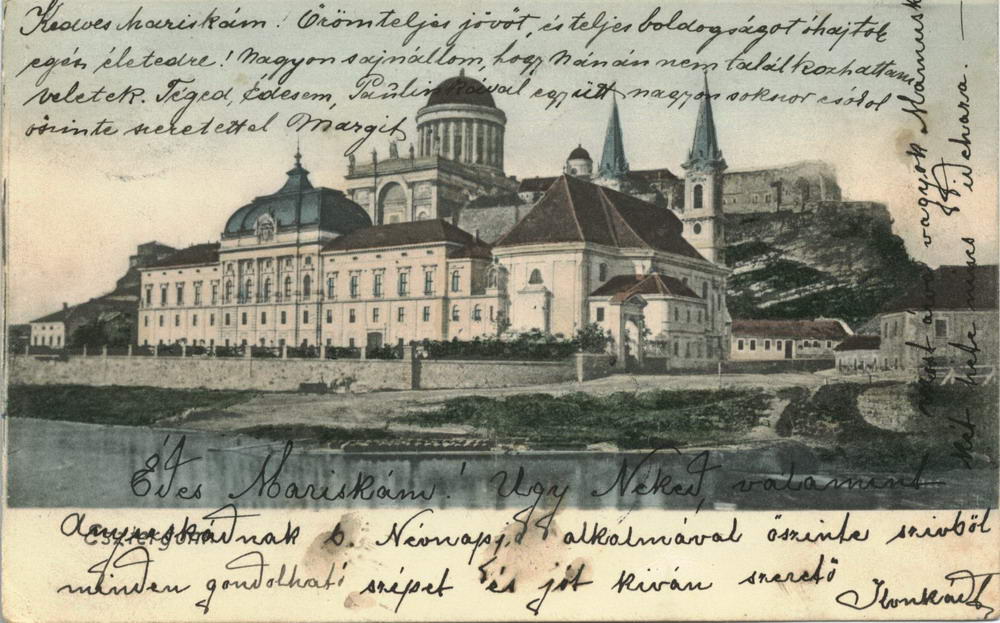 Kedves Mariskám! Örömteljes jövőt, és teljes boldogságot óhajtok
egész életedre! Nagyon sajnállom, hogy Nánán nem találkozhattam
veletek. Téged, Édesem, Paulinkával együtt nagyon sokszor csókol
őszinte szeretettel Margit
Most ádor vagyok Mámuskád
két hete nincs idehaza. —
Édes Mariskám! Ugy Neked, valamint
Anyuskádnak b. Névnapjid alkalmával őszinte szivből
Esztergom
minden gondolható szépet és jót kiván szerető
Ilonkád